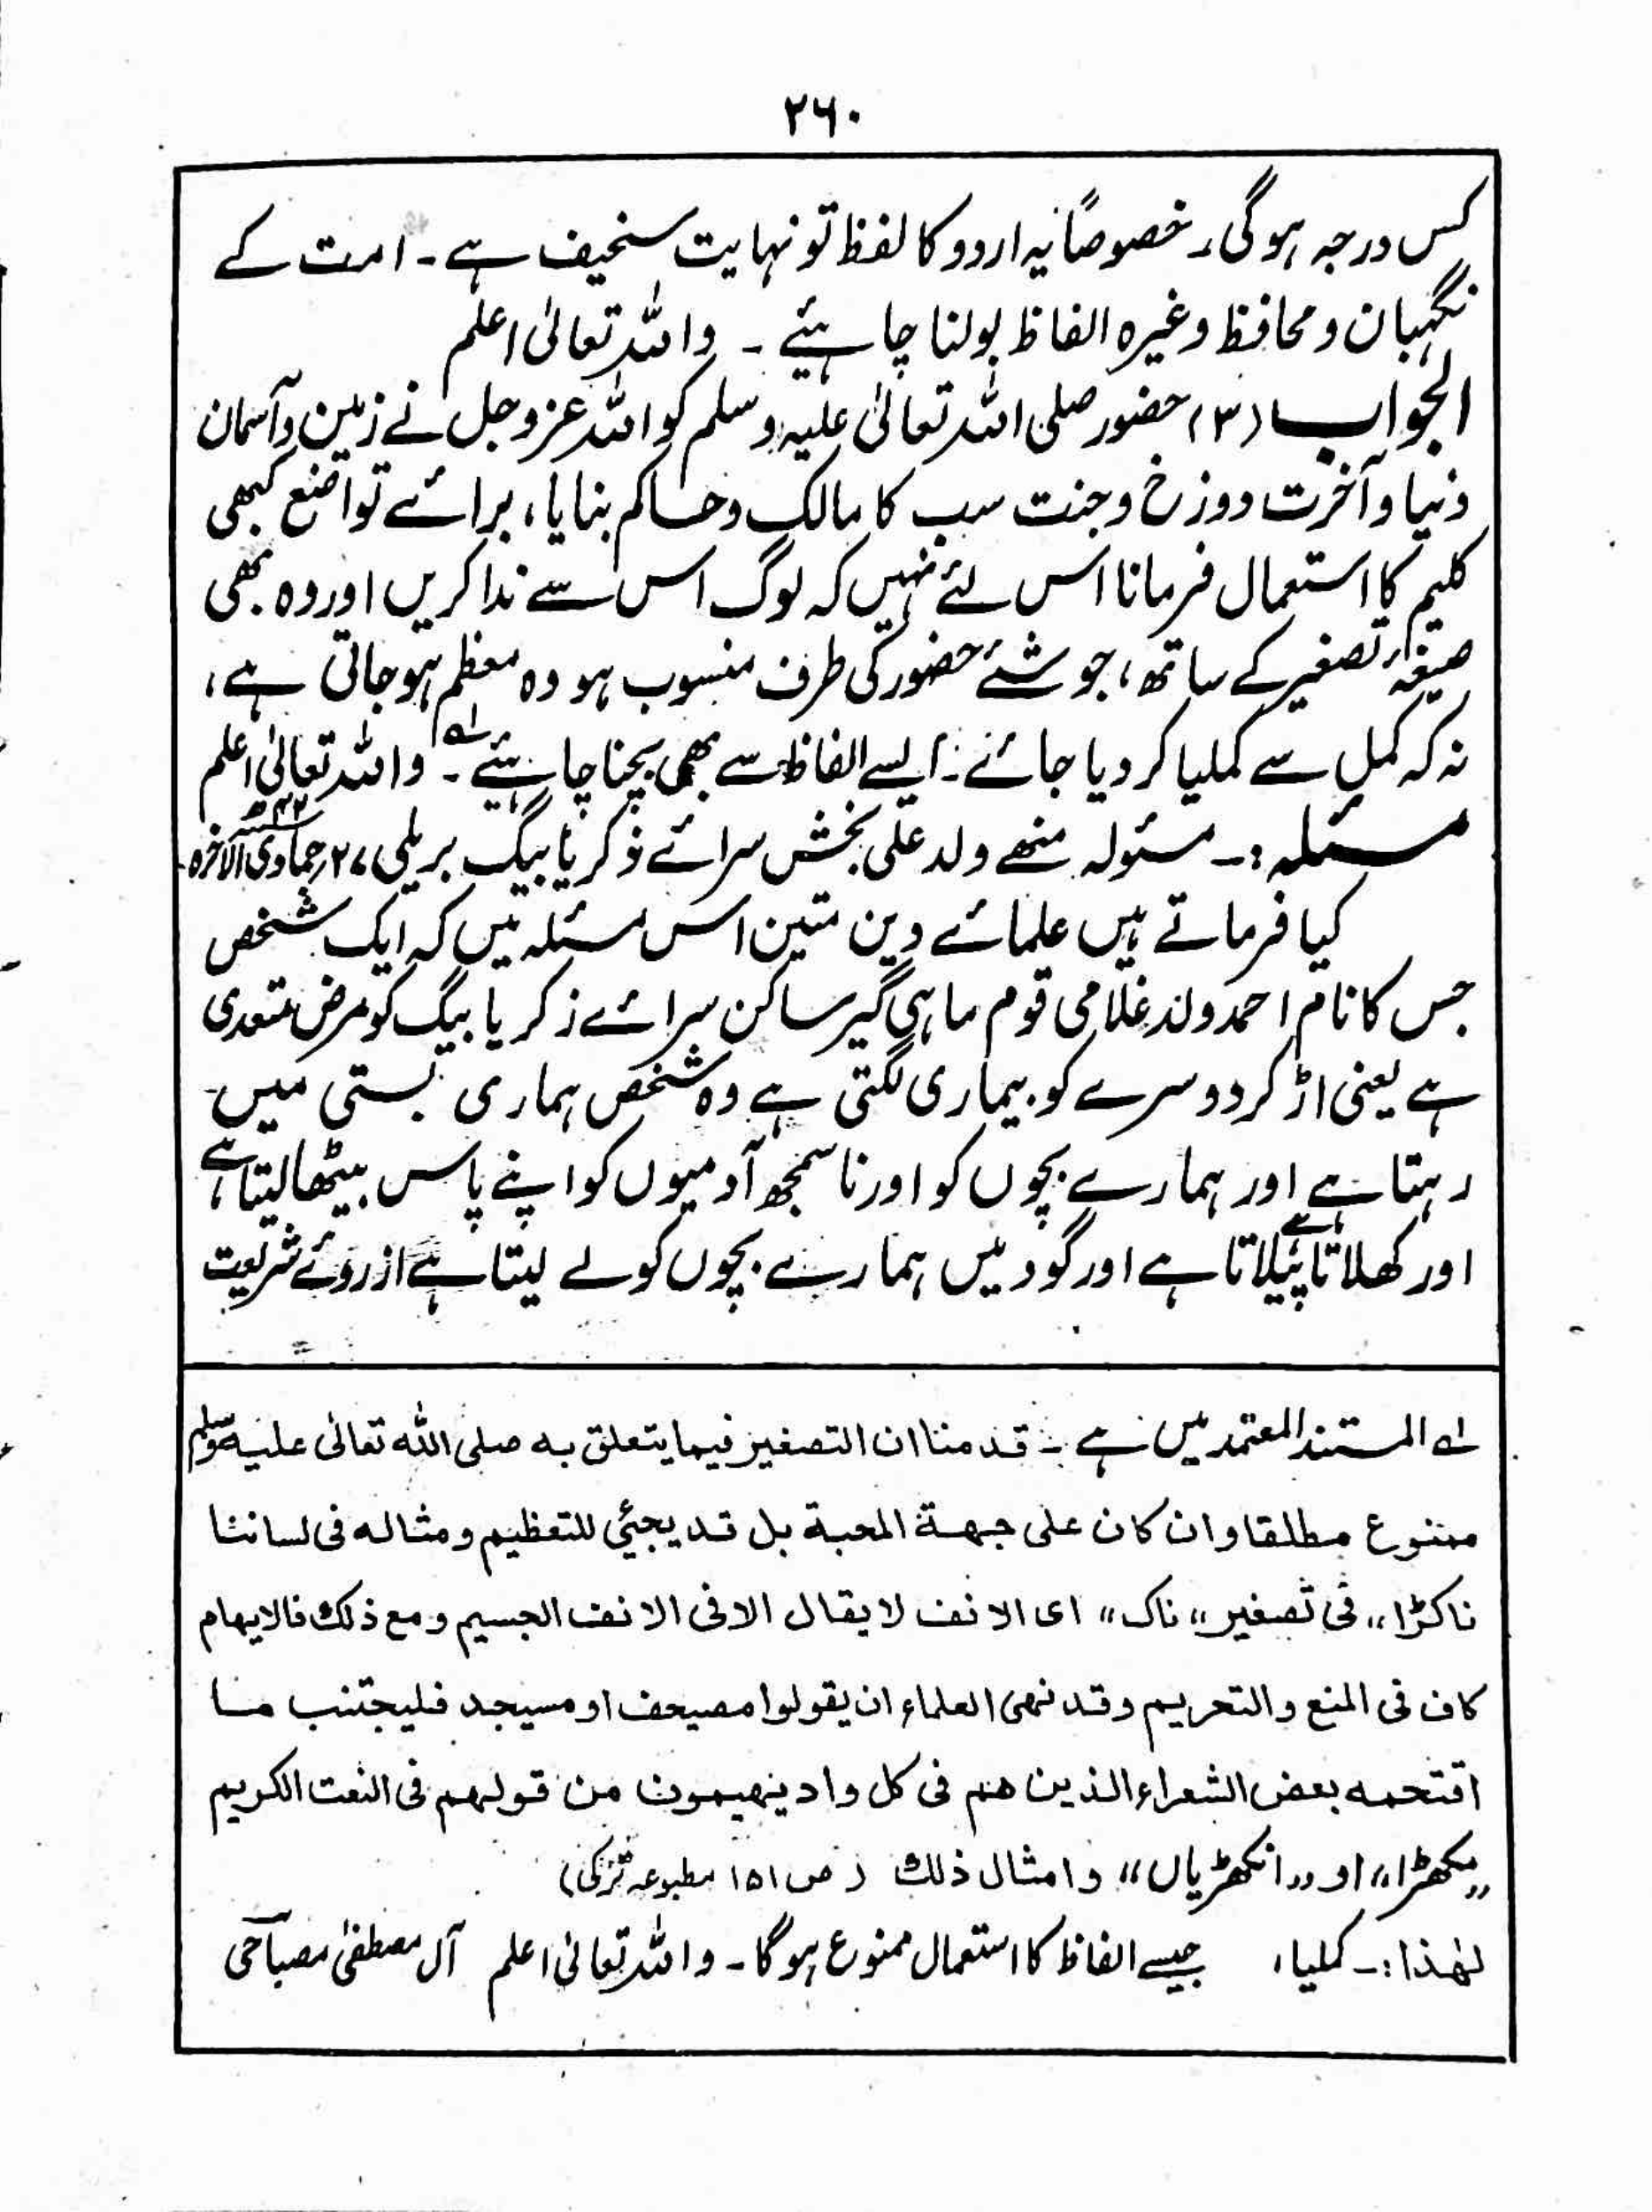 ۲۶۰
کس درجہ ہوگی۔ خصوصاً یہ اردو کا لفظ تو نہایت سخیف ہے۔ امت کے
نگہبان و محافظ وغیرہ الفاظ بولنا چاہئیے ۔ واللہ تعالیٰ اعلم
الجواب (۳) حضور صلی اللہ تعالیٰ علیہ وسلم کو اللہ عزوجل نے زمین و آسمان
دنیا و آخرت دوزخ و جنت سب کا مالک و حاکم بنایا، برائے تواضع کبھی
کلیم کا استعمال فرمانا اس لئے نہیں کہ لوگ اس سے ندا کریں اور وہ بھی
صیغۂ تصغیر کے ساتھ، جو شئے حضور کی طرف منسوب ہو وہ معظم ہو جاتی ہے،
نہ کہ کمل سے کملیا کر دیا جائے۔ ایسے الفاظ سے بھی بچنا چاہئیے۔ لہ واللہ تعالیٰ اعلم
مسئلہ :۔ مسئولہ منھے ولد علی بخش سرائے ذکریا بیگ بریلی ۲۷ جمادی الآخرہ ۴۲ھ
کیا فرماتے ہیں علمائے دین متین اس مسئلہ میں کہ ایک شخص
جس کا نام احمد ولد غلامی قوم ماہی گیر ساکن سرائے زکریا بیگ کو مرض متعدی
ہے یعنی اڑ کر دوسرے کو بیماری لگتی ہے وہ شخص ہماری بستی میں
رہتا ہے اور ہمارے بچوں کو اور ناسمجھ آدمیوں کو اپنے پاس بیٹھا لیتا ہے
اور کھلاتا پیلاتا ہے اور گود میں ہمارے بچوں کو لے لیتا ہے از روئے شریعت
لہ المستند المعتمد میں ہے ۔ قدمنا ان التصغیر فیما یتعلق بہ صلی اللہ تعالیٰ علیہ وسلم
ممنوع مطلقا وان کان علی جہۃ المحبۃ بل قد یجئی للتعظیم ومثالہ فی لساننا
ناکڑا،، فی تصغیر ،،ناک،، ای الانف لا یقال الا فی الانف الجسیم ومع ذلک فالایہام
کاف فی المنع والتحریم وقد نہی العلماء ان یقولوا مصیحف او مسیجد فلیجتنب ما
اقتحمہ بعض الشعراء الذین ھم فی کل وادیہیمون من قولہم فی النعت الکریم
،،مکھڑا،، او ،،انکھڑیاں،، وامثال ذلک (ص ۱۵۱ مطبوعہ ترکی)
لہٰذا :۔ کملیا، جیسے الفاظ کا استعمال ممنوع ہوگا۔ واللہ تعالیٰ اعلم آل مصطفیٰ مصباحی